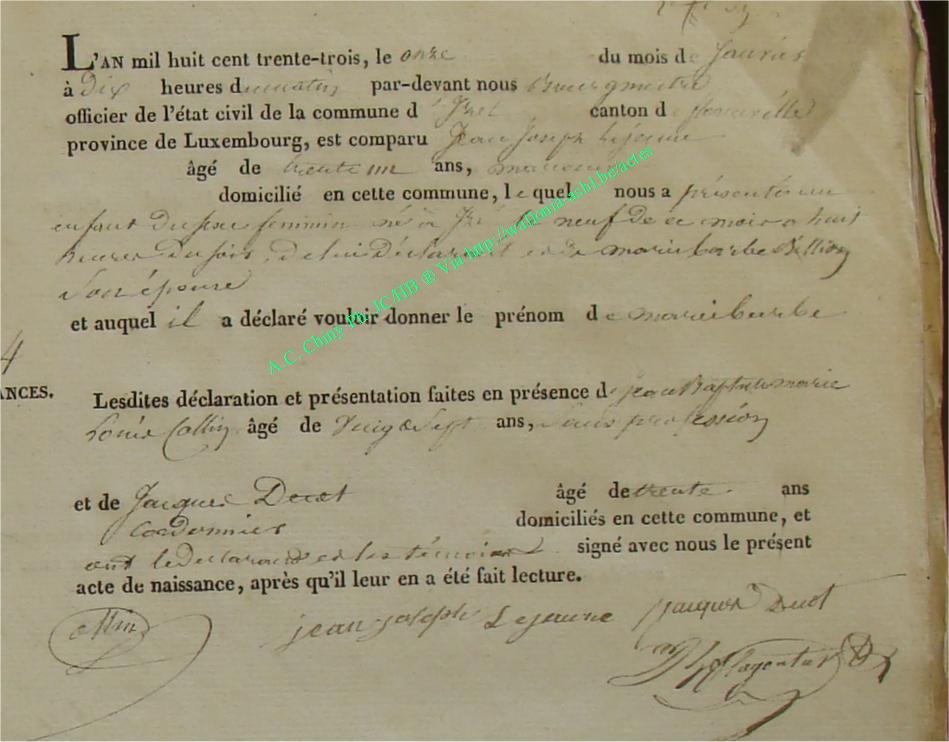 L'AN mil huit cent trente-trois, le onze du mois de Janvier
à Dix heures du matin par-devant nous Bourgmestre
officier de l'état civil de la commune d' Izel canton de
province de Luxembourg, est comparu Jean Joseph Lejeune
âgé de trente un ans,
domicilié en cette commune, le quel nous a présenté un
enfant du sexe feminin né à Izel le neuf de ce mois a huit
heures du soir, de lui Déclarant et de marie barbe
Son épouse
et auquel il a déclaré vouloir donner le prénom de marie barbe
4
ANCES.
Lesdites déclaration et présentation faites en présence de jean Baptiste marie
Louis Collin âgé de Vingt Sept ans, Sans profession
et de Jacques Ducot âgé de trente ans
Cordonnier domiciliés en cette commune, et
ont le Déclarant et les témoins signé avec nous le présent
acte de naissance, après qu'il leur en a été fait lecture.
ollin jean joseph Lejeune jacques Ducot
A.C. Chiny Ph. JCHB ® Via http://wallonia.asbl.be/actes